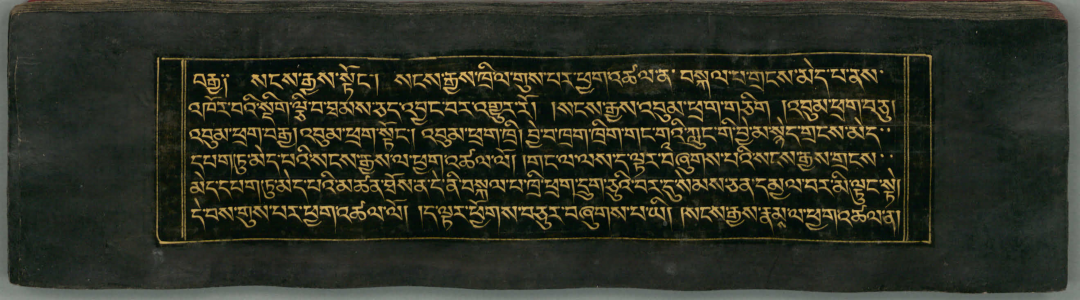 བརྒྱ༎ སངས་རྒྱས་སྟོང་། སངས་རྒྱས་ཁྲིལ་གུས་པར་ཕྱག་འཚལ་ན་ བསྐལ་པ་གྲངས་མེད་པ་ནས་
འཁོར་བའི་སྡིག་ལྕི་བ་ཐམས་ཅད་འབྱང་བར་འགྱུར་རོ། །སངས་རྒྱས་འབུམ་ཕྲག་གཅིག །འབུམ་ཕྲག་བཅུ།
འབུམ་ཕྲག་བརྒྱ། འབུམ་ཕྲག་སྟོང་། འབུམ་ཕྲག་ཁྲི། བྱེ་བ་ཁྲག་ཁྲིག་གང་གཱའི་ཀླུང་གི་བྱེ་མ་སྙེད་གྲངས་མེད་
དཔག་ཏུ་མེད་པའི་སངས་རྒྱས་ལ་ཕྱག་འཚལ་ལོ། །གང་ལ་ལས་ད་ལྟར་བཞུགས་པའི་སངས་རྒྱས་གྲངས་
མེད་དཔག་ཏུ་མེད་པའི་མཚན་ཐོས་ན་དེ་ནི་བསྐལ་པ་ཁྲི་ཕྲག་དྲུག་ཅུའི་བར་དུ་སེམས་ཅན་དམྱལ་བར་མི་ལྟུང་སྟེ།
དེ་བས་གུས་པར་ཕྱག་འཚལ་ལོ། །ད་ལྟར་ཕྱོགས་བཅུར་བཞུགས་པ་ཡི། །སངས་རྒྱས་རྣམས་ལ་ཕྱག་འཚལ་ན།